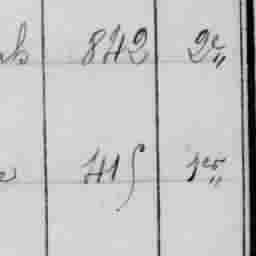 842 2e„
415 1er„